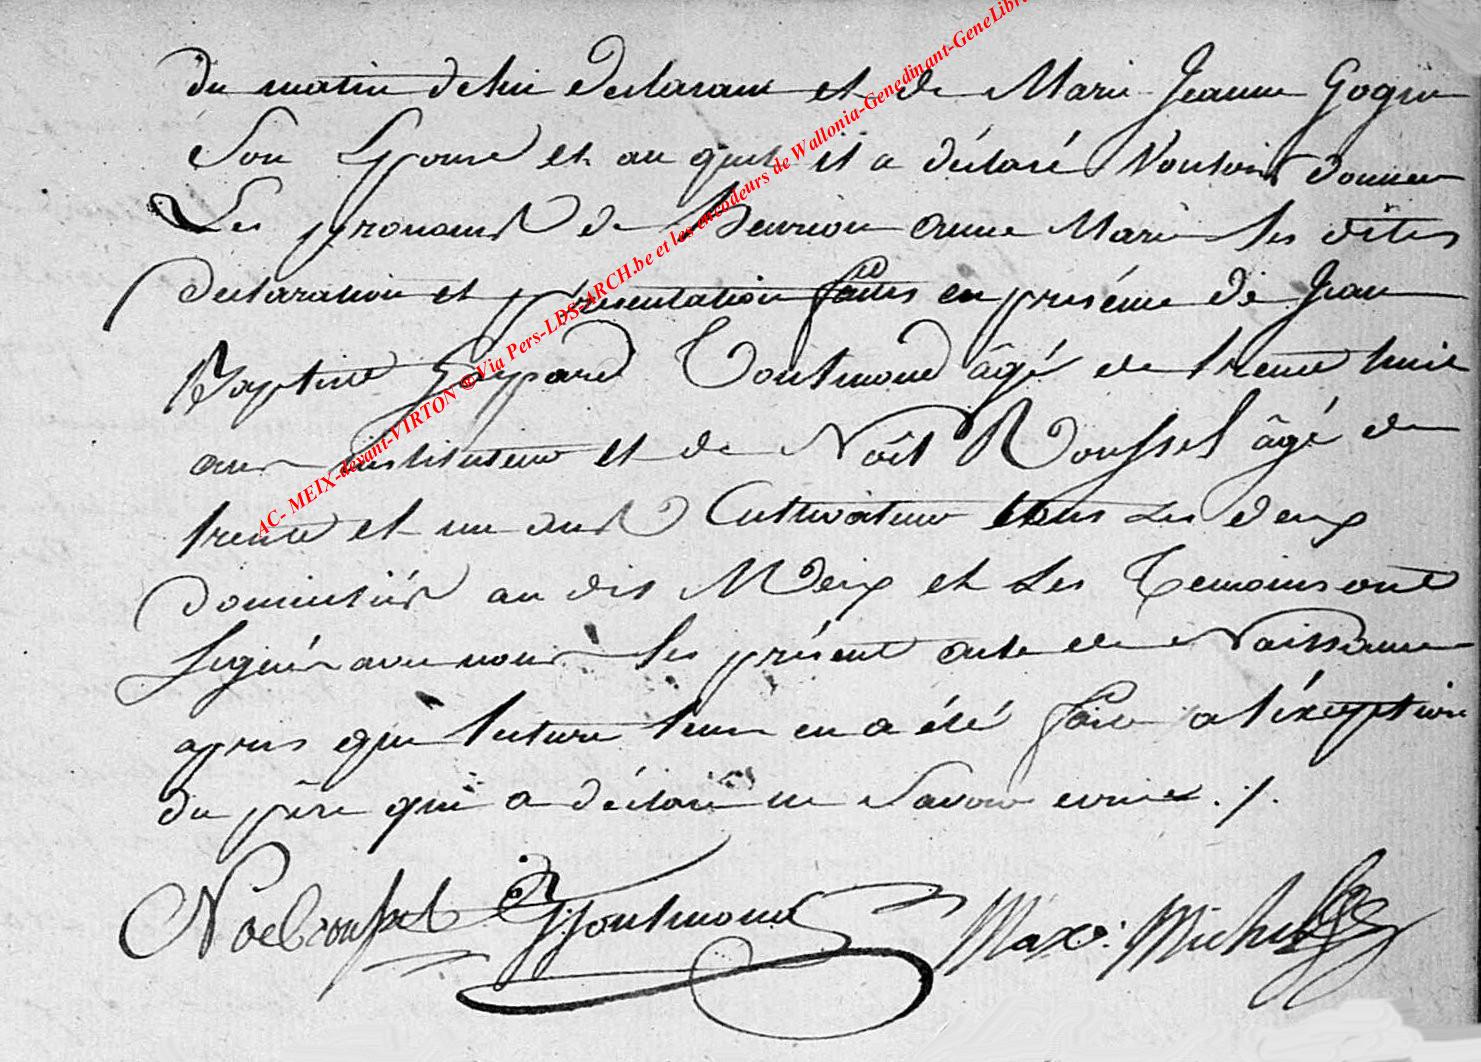 du matin de lui declarant et de Marie Jeanne Gogin
Son Epouse et au quel il a déclaré Vouloir donner
Les prenoms de henrion anne Marie les dites
declaration et presentation faites en présence de Jean
Baptiste Gaspard Toutmond âgé de trente huit
ans instituteur et de Noêl Roussel âgé de
trente et un ans Cultivateur tous Les deux
Domiciliés au dit Meix et Les Temoins ont
Signés avec nous les présent acte de Naissance
apres que lecture leur en a été faite a l'éxeption
du père qui a déclaré ne Savoir ecrire ./.
Noel roussel Toutmond Max: Michel
AC- MEIX-devant-VIRTON ® Via Pers-LDS-ARCH.be et les encodeurs de Wallonia-Genedinant-GeneLibr